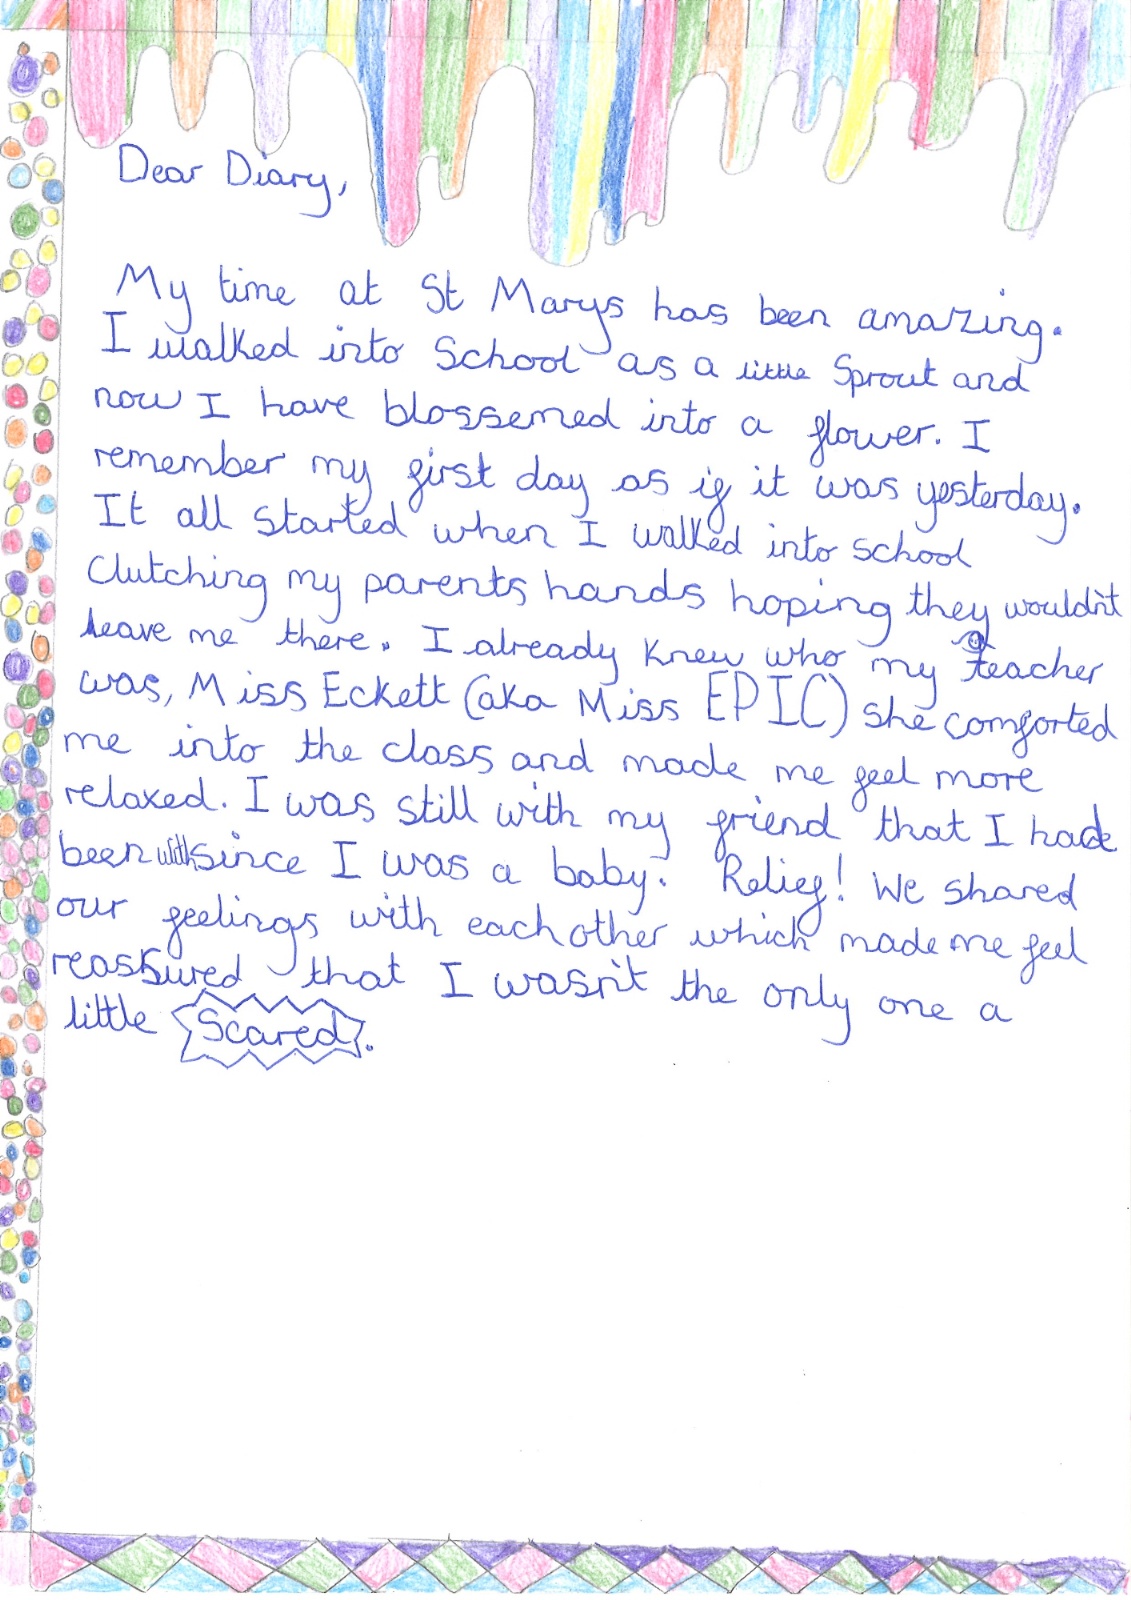 Dear Diary,
My time at St Marys has been amazing.
I walked into School as a little Sprout and
now I have blossemed into a flower. I
remember my first day as if it was yesterday.
It all started when I walked into school
Clutching my parents hands hoping they wouldn't
leave me there. I already knew who my teacher
was, Miss Eckett (aka Miss EPIC) she comforted
me into the class and made me feel more
relaxed. I was still with my friend that I had
been with since I was a baby. Relief! We shared
our feelings with eachother which made me feel
reassured that I wasn't the only one a
little Scared.